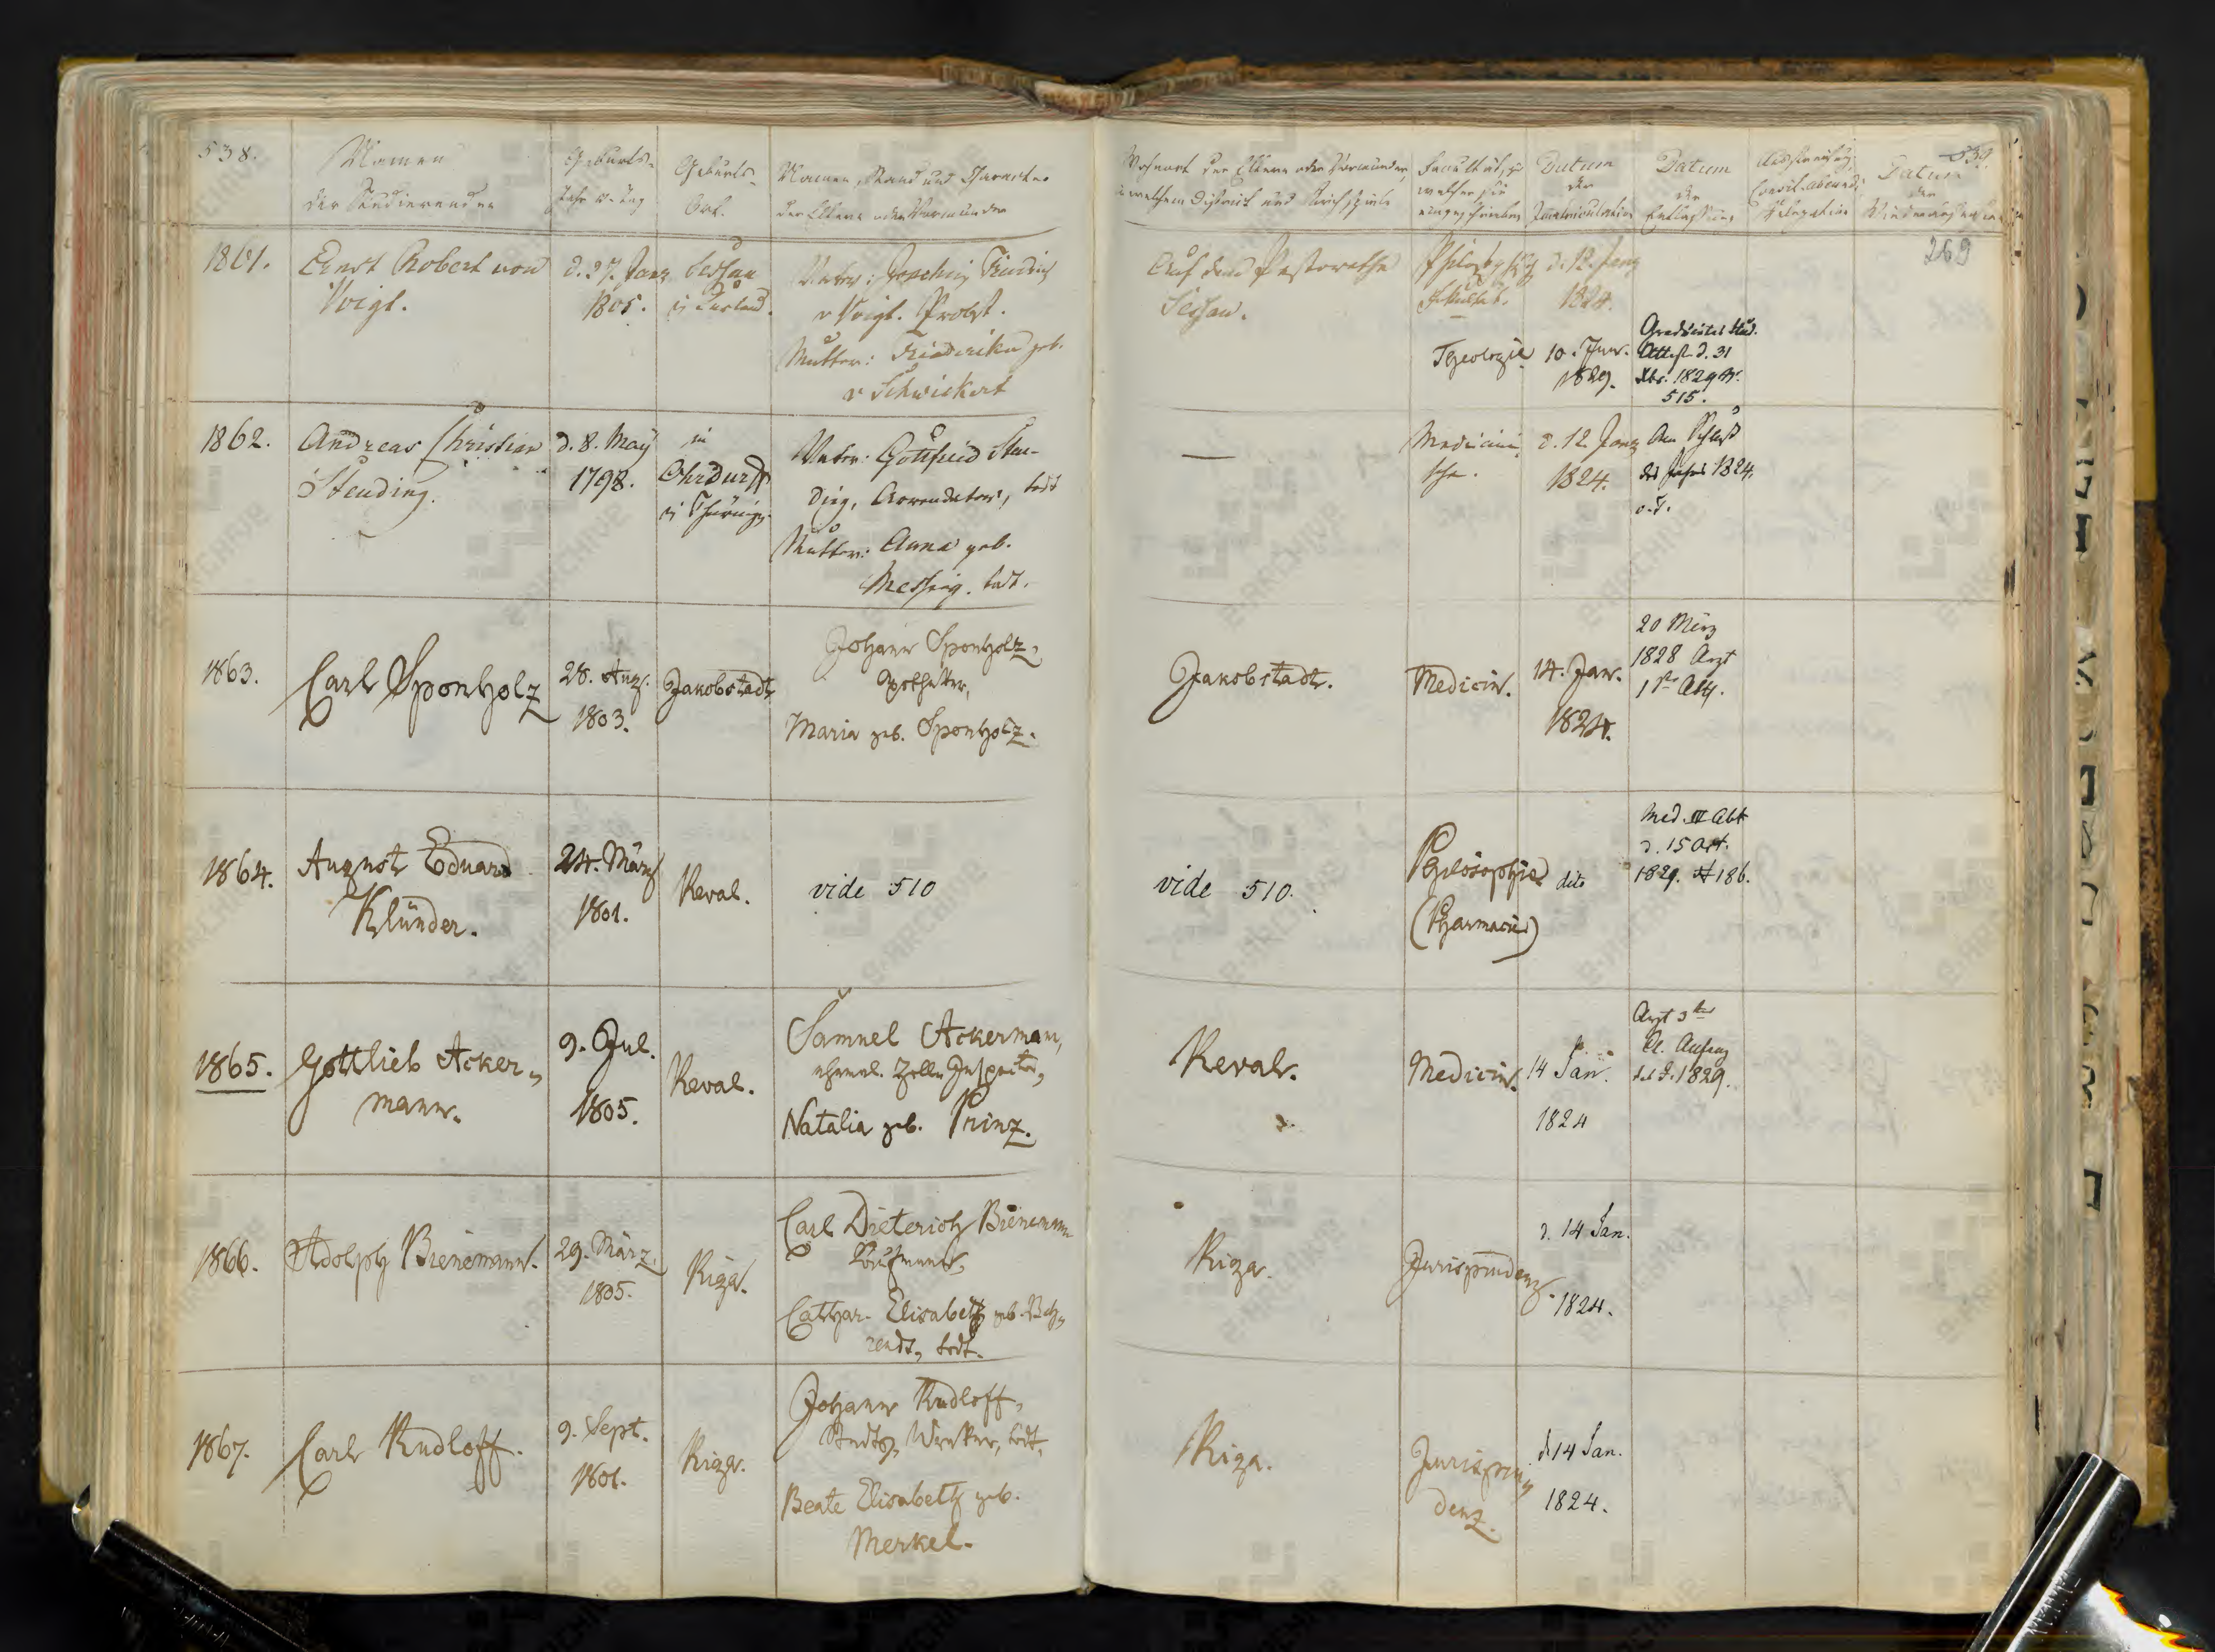 538.
Namen
der Studierenden
Geburts-
Jahr u. Tag
Geburts-
Ort.
Namen, Stand und Charakter
der Eltern oder Vormünder
Wohnort der Eltern oder Vormünder,
in welchem District und Kirchspiele
Facultät, zu
welcher sie
eingeschrieben
Datum
der
Immatriculation
Datum
der
Entlassung
Relegation
Datum
der
539.
269
1861.
Ernst Robert von
Voigt.
d. 27. Janr
1805.
Sessau
in Kurland.
Vater: Joachim Friedrich
v Voigt. Probst.
Mutter: Friederika geb.
v Schwickert
Auf dem Pastorathe
Sessau.
Philosophisch
Fakultät.
d. 12. Janr
1824.
Theologie
10. Jun.
1829.
Graduirter Stud.
Attest d. 31
Xbr. 1829
515.
1862.
Andreas Christian
Steuding.
d. 8. May
1798.
in
Ohrdurff
in Thüring.
Vater: Gottfried Steu-
ding, Arrendator, todt
Mutter: Anna geb.
Messing. todt.
—
Medicini
sche.
d. 12 Janr
1824.
Am Schluß
des Jahres 1824.
1863.
Carl Sponholz
28. Aug.
1803.
Jakobstadt
Johann Sponholz,
Apotheker,
Maria geb. Sponholz.
Jakobstadt.
Medicin.
14. Jan.
1824.
20 März
1828 Arzt
1ster Abth.
1864.
August Eduard
Klünder.
24. März
1801.
Reval.
vide 510
vide 510.
Philosophie
(Pharmacie)
dito
Med. III Abt
d. 15 Oct.
1829. # 186.
1865.
Gottlieb Acker-
mann.
9. Jul.
1805.
Reval.
Samuel Ackerman,
ehemal. Zolln Inspector,
Natalia geb. Prinz.
Reval.
Medicin.
14 Jan.
1824
Arzt 3ter
Cl. Anfang
des J. 1829.
1866.
Adolph Bienemann.
29. März
1805.
Riga.
Carl Dieterich Bienemann
Kaufmann,
Cathar. Elisabeth geb. Beh-
rendt, todt.
Riga.
Jurisprudenz
d. 14 Jan.
1824.
1867.
Carl Rudloff.
9. Sept.
1801.
Riga.
Johann Rudloff,
Stadts, Wraker, todt.
Beate Elisabeth geb.
Merkel.
Riga.
Jurispru-
denz.
d 14 Jan.
1824.